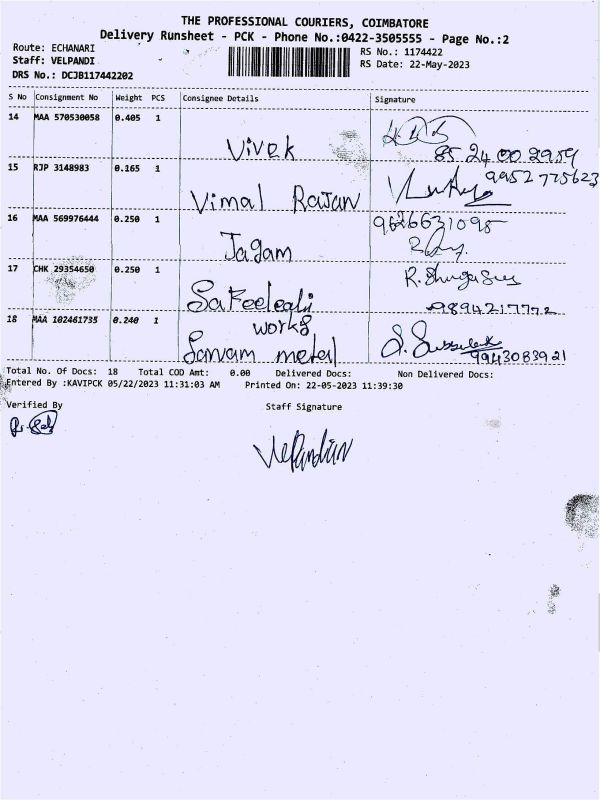 THE PROFESSIONAL COURIERS, COIMBATORE
Delivery Runsheet - PCK - Phone No.:0422-3505555 - Page No.:2
Route: ECHANARI
RS No.: 1174422
Staff: VELPANDI
RS Date: 22-May-2023
DRS No.: DCJB117442202
S No Consignment No Weight PCS Consignee Details Signature
14 MAA 570530058 0.405 1
Vivek
85 24 00 2959
15 RJP 3148983 0.165 1
9952775623
Vimal Rajan
16 MAA 569976444 0.250 1
9626631095
Jagam
17 CHK 29354650 0.250 1
9894217772
18 MAA 102461735 0.240 1
works
Sarvam metal
9943083921
Total No. Of Docs: 18 Total COD Amt: 0.00 Delivered Docs: Non Delivered Docs:
Entered By :KAVIPCK 05/22/2023 11:31:03 AM Printed On: 22-05-2023 11:39:30
Verified By Staff Signature
VelPandian